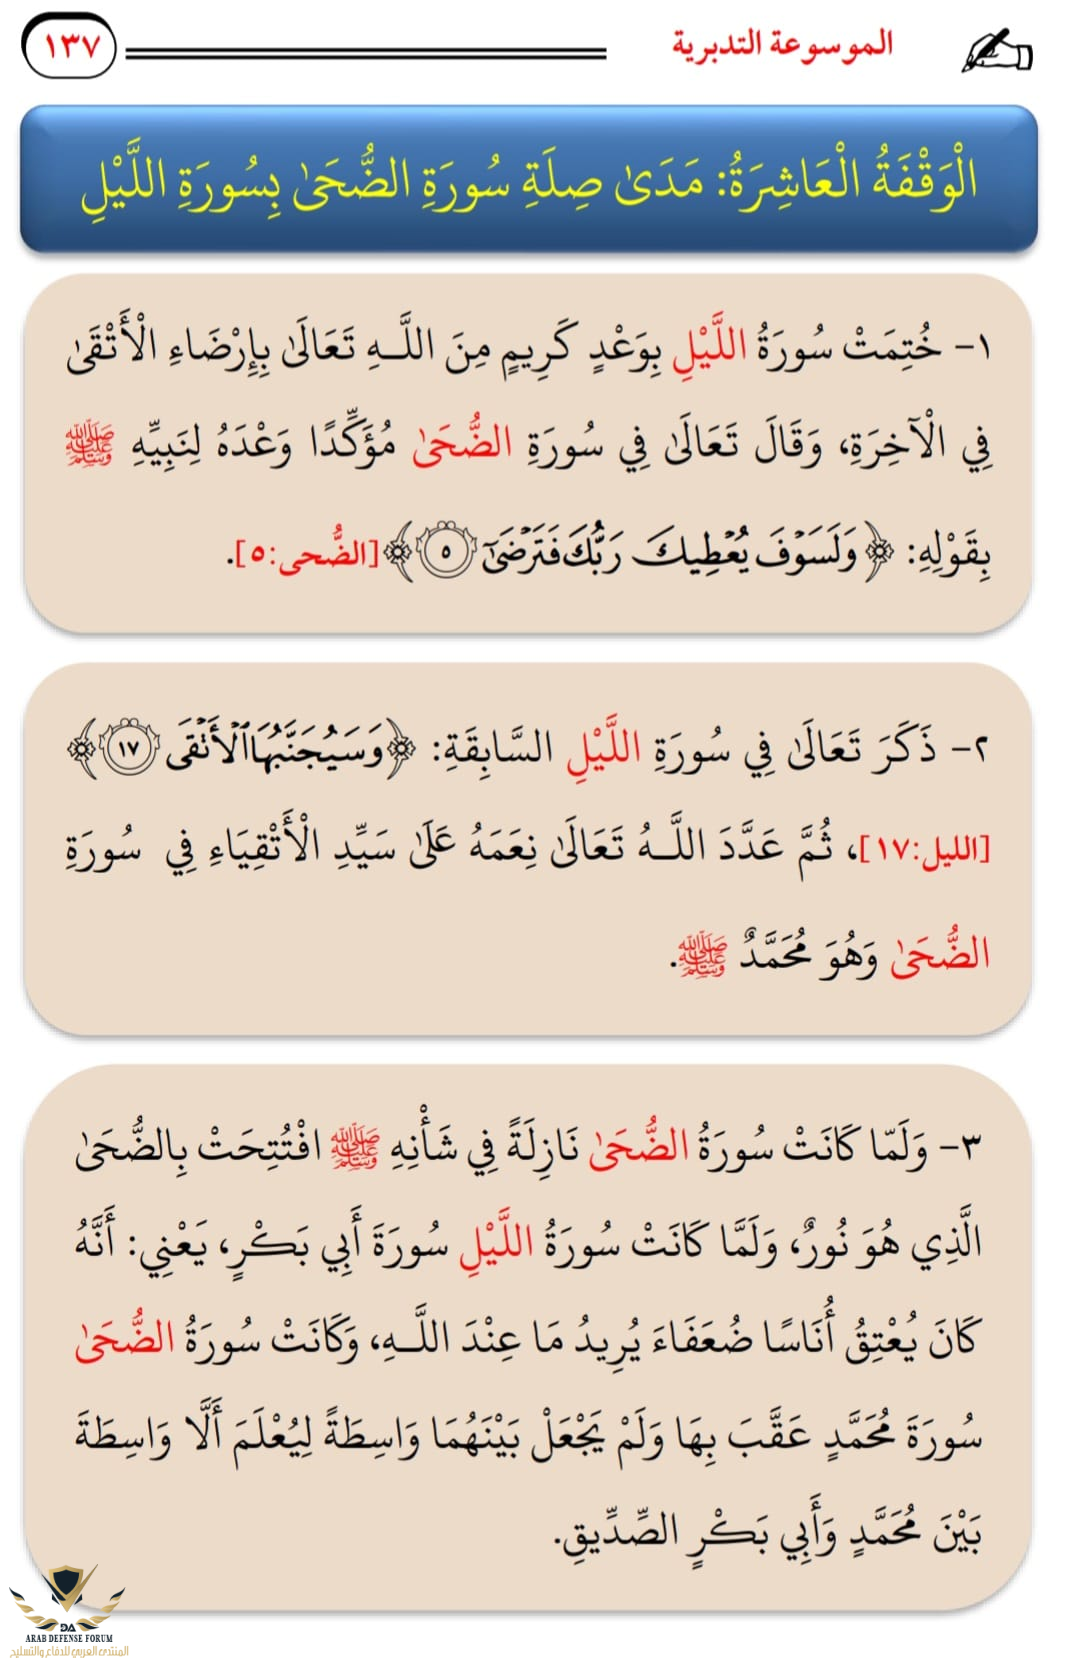 الموسوعة التدبرية
١٣٧
الْوَقْفَةُ الْعَاشِرَةُ: مَدَىٰ صِلَةِ سُورَةِ الضُّحَىٰ بِسُورَةِ اللَّيْلِ
١- خُتِمَتْ سُورَةُ اللَّيْلِ بِوَعْدٍ كَرِيمٍ مِنَ اللَّـهِ تَعَالَىٰ بِإِرْضَاءِ الْأَتْقَىٰ
فِي الْآخِرَةِ، وَقَالَ تَعَالَىٰ فِي سُورَةِ الضُّحَىٰ مُؤَكِّدًا وَعْدَهُ لِنَبِيِّهِ ﷺ
بِقَوْلِهِ: ﴿وَلَسَوْفَ يُعْطِيكَ رَبُّكَ فَتَرْضَىٰٓ ٥﴾ [الضُّحى:٥].
٢- ذَكَرَ تَعَالَىٰ فِي سُورَةِ اللَّيْلِ السَّابِقَةِ: ﴿وَسَيُجَنَّبُهَا ٱلْأَتْقَى ١٧﴾
[الليل:١٧]، ثُمَّ عَدَّدَ اللَّـهُ تَعَالَىٰ نِعَمَهُ عَلَىٰ سَيِّدِ الْأَتْقِيَاءِ فِي سُورَةِ
الضُّحَىٰ وَهُوَ مُحَمَّدٌ ﷺ.
٣- وَلَمّا كَانَتْ سُورَةُ الضُّحَىٰ نَازِلَةً فِي شَأْنِهِ ﷺ افْتُتِحَتْ بِالضُّحَىٰ
الَّذِي هُوَ نُورٌ، وَلَمَّا كَانَتْ سُورَةُ اللَّيْلِ سُورَةَ أَبِي بَكْرٍ، يَعْنِي: أَنَّهُ
كَانَ يُعْتِقُ أُنَاسًا ضُعَفَاءَ يُرِيدُ مَا عِنْدَ اللَّـهِ، وَكَانَتْ سُورَةُ الضُّحَىٰ
سُورَةَ مُحَمَّدٍ عَقَّبَ بِهَا وَلَمْ يَجْعَلْ بَيْنَهُمَا وَاسِطَةً لِيُعْلَمَ أَلَّا وَاسِطَةَ
بَيْنَ مُحَمَّدٍ وَأَبِي بَكْرٍ الصِّدِّيقِ.
DA
ARAB DEFENSE FORUM
المنتدى العربي للدفاع والتسليح